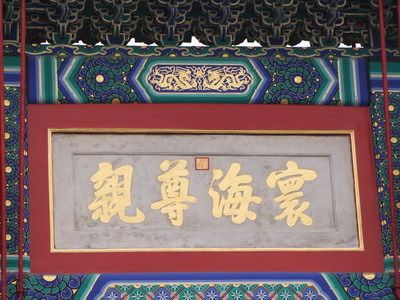 寰海尊親